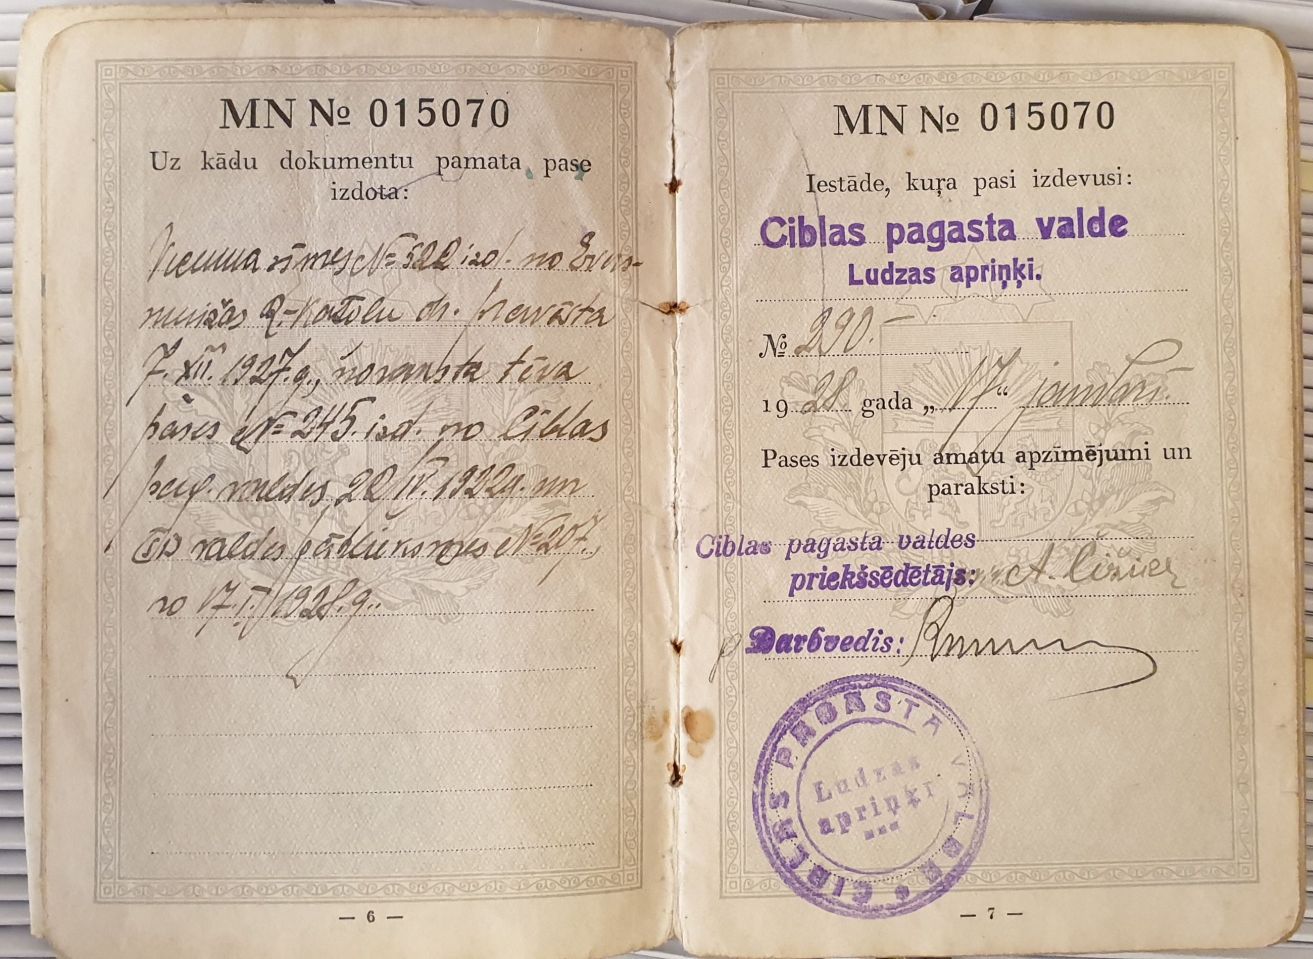 MN № 015070
Uz kādu dokumentu pamata pase
izdota:
zīmes № 522 izd. no Evers-
muižas R-Katoļu dr.
7. XII. 1927.g., noraksta tēva
pases № 245. izd. no Ciblas
pag. valdes 22/IV. 1922g. un
valdes № 207.,
no 17.I. 1928.g..
— 6 —
MN № 015070
Iestāde, kuŗa pasi izdevusi:
Ciblas pagasta valde
Ludzas apriņķī.
№ 290.-
1928 gada „17“ janvārī.
Pases izdevēju amatu apzīmējumi un
paraksti:
Ciblas pagasta valdes
priekšsēdētājs: A.
p Darbvedis:
CIBLAS PAGASTA VALDE
Ludzas
apriņķī
— 7 —